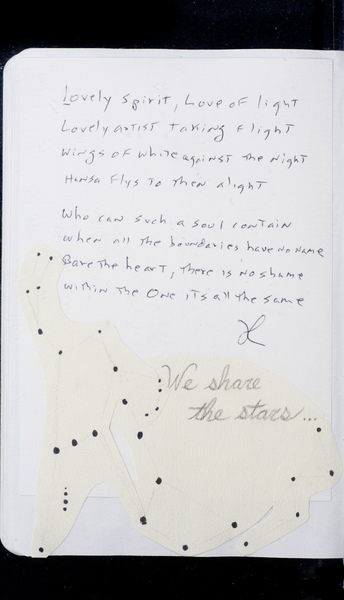 Lovely spirit, Love of light
Lovely artist taking flight
wings of white against the night
Hansa flys to then alight
who can such a soul contain
when all the boundaries have no name
Bare the heart, there is no shame
within the One its all the same
We share
the stars...